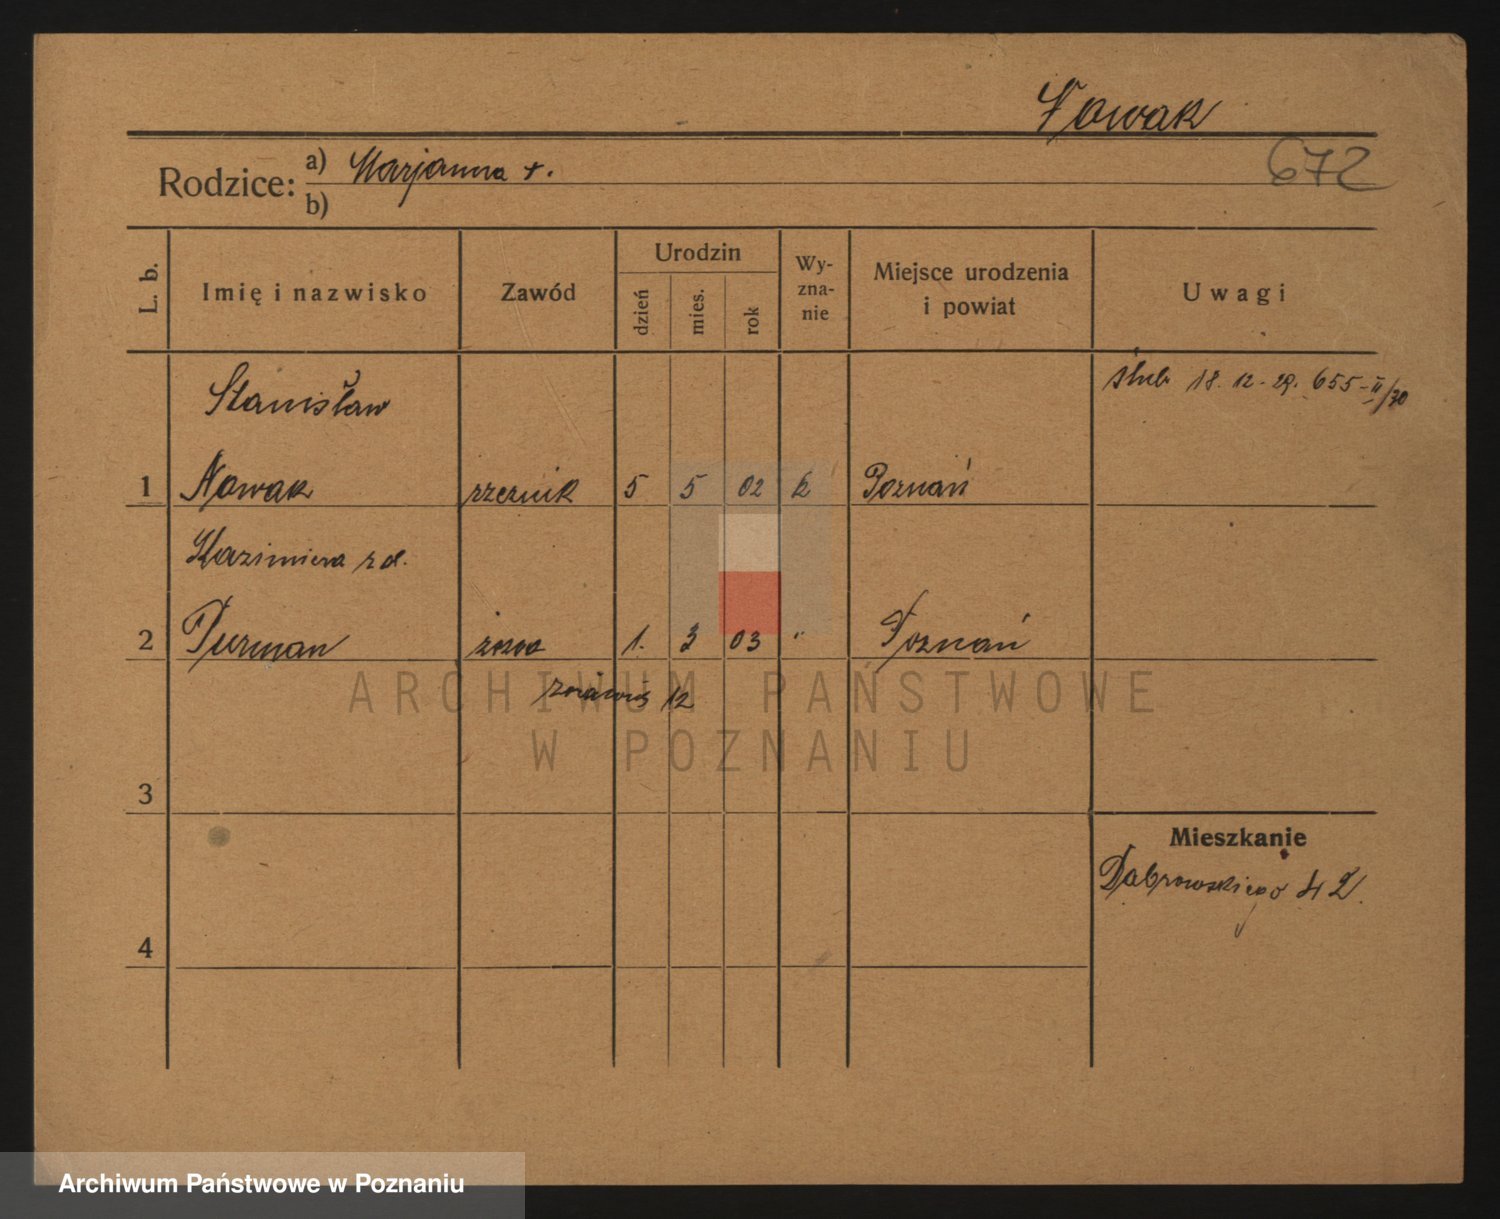 Nowak
672
Rodzice: a) Marjanna +.
b)
L. b.
Imię i nazwisko
Zawód
Urodzin
dzień
mies.
rok
Wy-
zna-
nie
Miejsce urodzenia
i powiat
Uwagi
Stanisław
ślub 18. 12. 29. 655-II/30
1 Nowak rzeźnik 5 5 02 k Poznań
Kazimiera zd.
2 Purman 1. 3 03 " Poznań
12
ARCHIWUM PAŃSTWOWE
W POZNANIU
3
Mieszkanie
Dąbrowskiego 42.
4
Archiwum Państwowe w Poznaniu